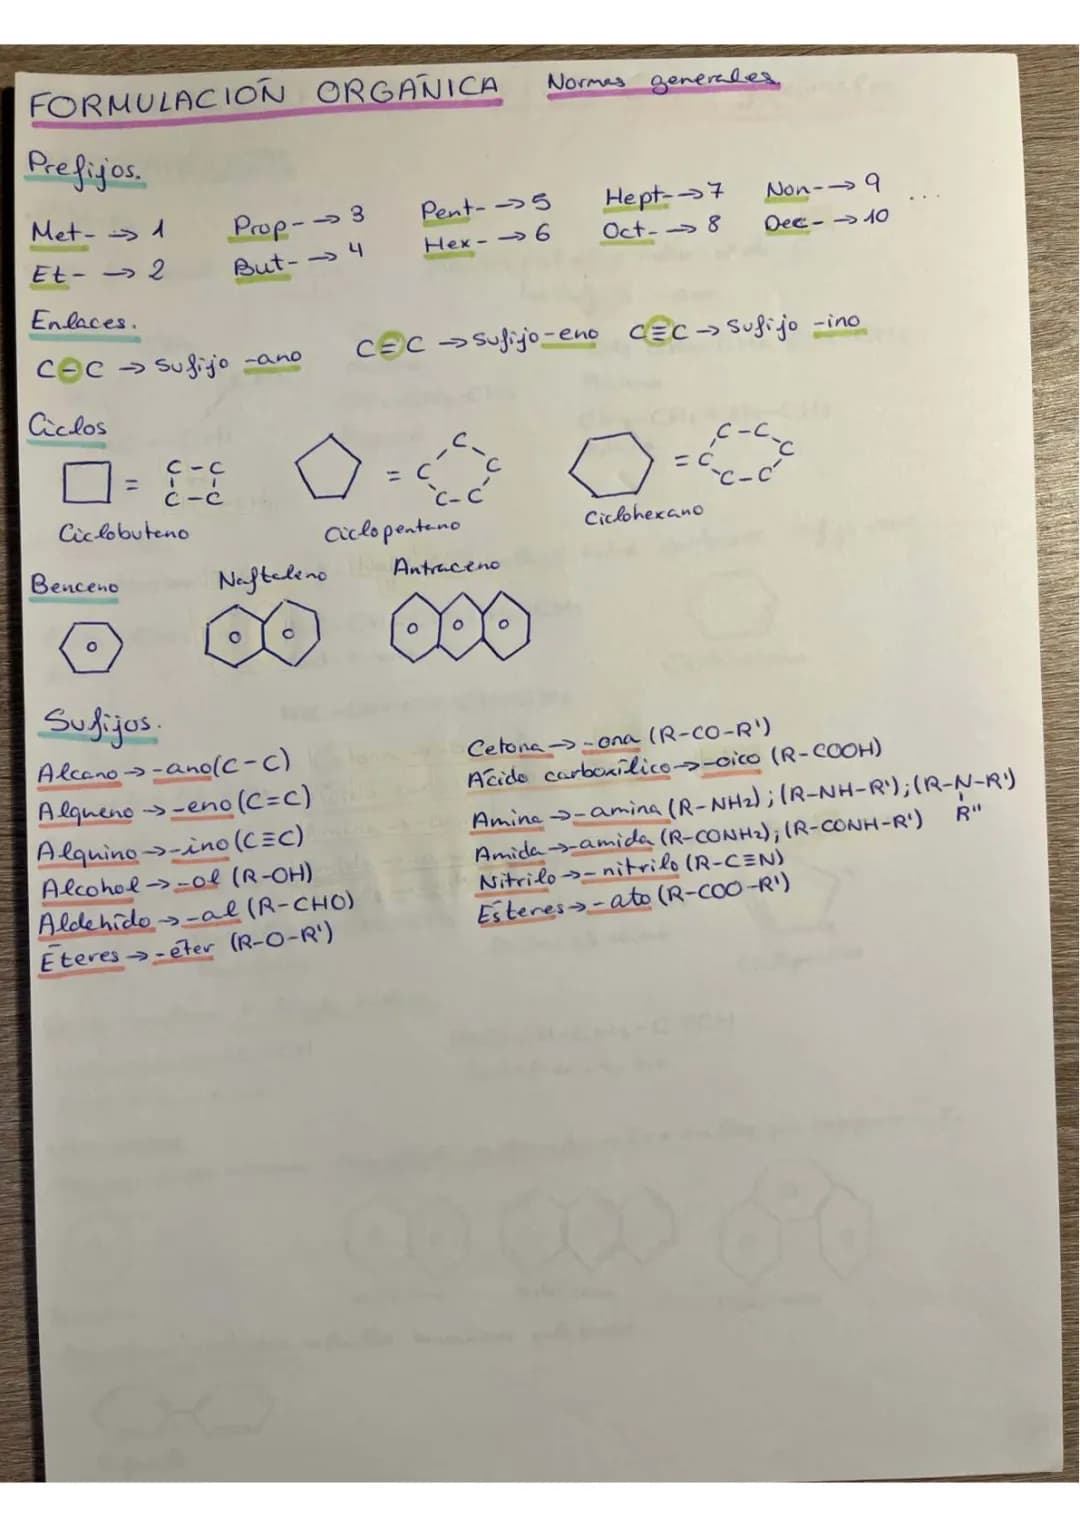 FORMULACIÓN ORGÁNICA Normas generales
Prefijos.
Met- → 1 Prop- → 3 Pent- → 5 Hept- → 7 Non- → 9 ...
Et- → 2 But- → 4 Hex- → 6 Oct- → 8 Dec- → 10
Enlaces.
C-C → Sufijo -ano C=C → Sufijo -eno C≡C → Sufijo -ino
Ciclos
= C-C C-C
= C C C C-C
= C-C C C C-C
Ciclobutano Ciclopentano Ciclohexano
Benceno Naftaleno Antraceno
Sufijos.
Alcano → -ano (C-C)
Alqueno → -eno (C=C)
Alquino → -ino (C≡C)
Alcohol → -ol (R-OH)
Aldehído → -al (R-CHO)
Éteres → -éter (R-O-R')
Cetona → -ona (R-CO-R')
Ácido carboxílico → -oico (R-COOH)
Amina → -amina (R-NH2); (R-NH-R'); (R-N-R')
R''
Amida → -amida (R-CONH2); (R-CONH-R')
Nitrilo → -nitrilo (R-C≡N)
Ésteres → -ato (R-COO-R')